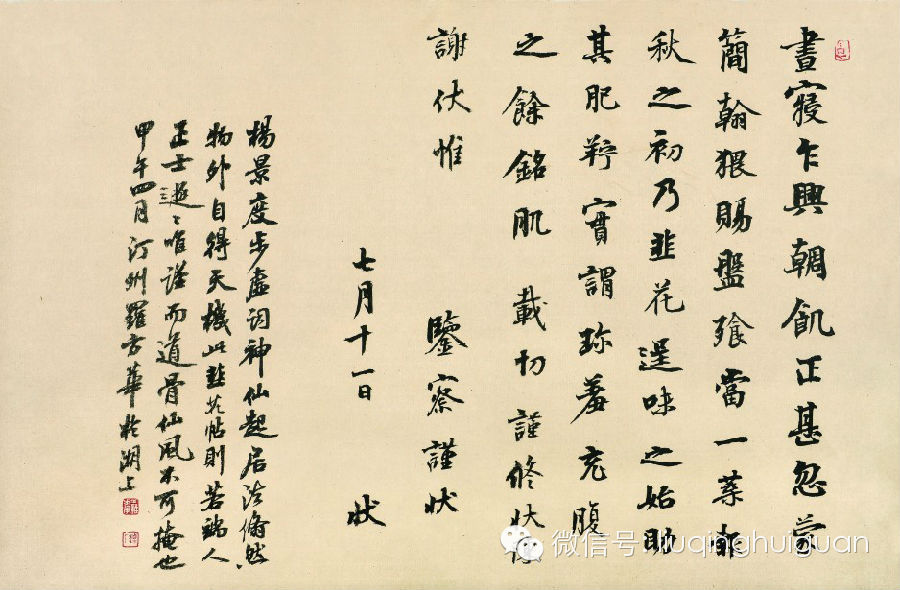 晝寢乍興輖飢正甚忽蒙
簡翰猥賜盤飧當一葉報
秋之初乃韭花逞味之始助
其肥羜實謂珍羞充腹
之餘銘肌載切謹修狀陳
謝伏惟 鑒察謹狀
七月十一日 狀
楊景度步虛詞神仙起居法翛然
物外自得天機此韭花帖則若端人
正士唯謹而道骨仙風不可掩也
甲午四月汀州羅方華於湖上
微信号: